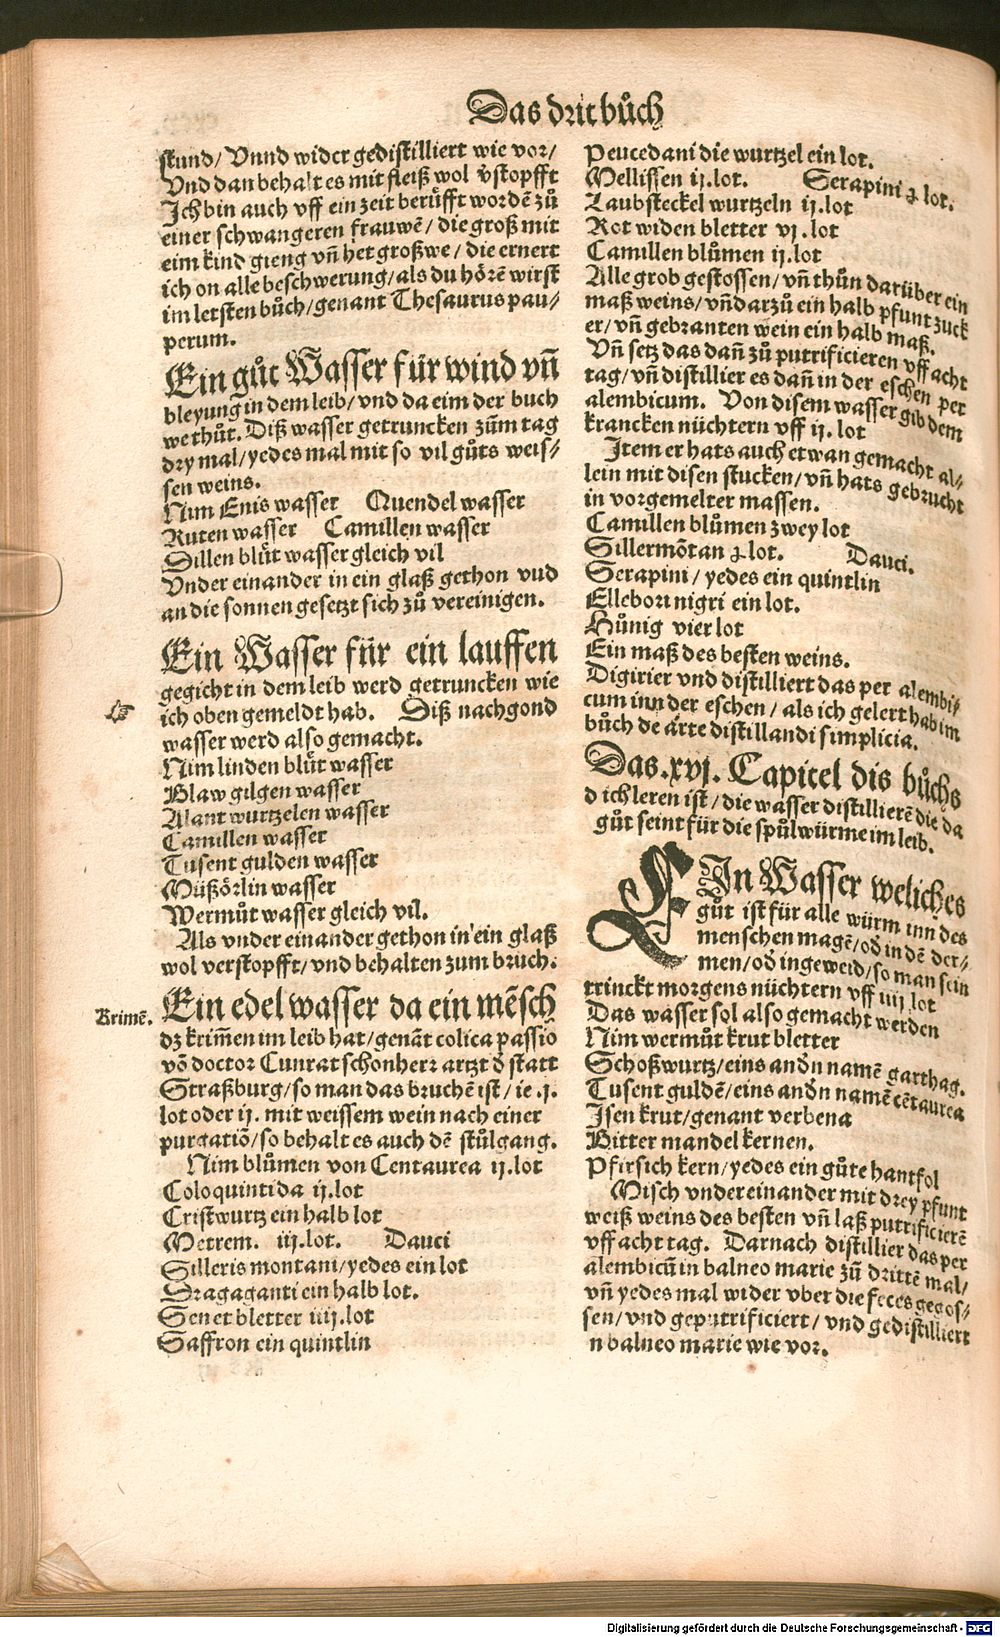 Das drit bůch
stund/ Vnnd wider gedistilliert wie vor/
Vnd dan behalt es mit fleiß wol v̉stopfft
Ich bin auch vff ein zeit berüfft wordē zů
einer schwangeren frauwē/ die groß mit
eim kind gieng vñ het groß we/ die ernert
ich on alle beschwerung/ als du hörē wirst
im letsten bůch/ genant Thesaurus pau-
perum.
Ein gůt Wasser für wind vñ
bleyung in dem leib/ vnd da eim der buch
we thůt. Diß wasser getruncken zům tag
dry mal/ yedes mal mit so vil gůts weis-
sen weins.
Nim Enis wasser Quendel wasser
Ruten wasser Camillen wasser
Dillen blůt wasser gleich vil
Vnder einander in ein glaß gethon vnd
an die sonnen gesetzt sich zů vereinigen.
Ein Wasser für ein lauffen
gegicht in dem leib werd getruncken wie
ich oben gemeldt hab. Diß nachgond
wasser werd also gemacht.
Nim linden blůt wasser
Blaw gilgen wasser
Alant wurtzelen wasser
Camillen wasser
Tusent gulden wasser
Müßörlin wasser
Wermůt wasser gleich vil.
Als vnder einander gethon in ein glaß
wol verstopfft/ vnd behalten zum bruch.
Krimē.
Ein edel wasser da ein mēsch
dz krimēn im leib hat/ genāt colica passio
vō doctor Cunrat schonherr artzt d̉ statt
Straßburg/ so man das bruchē ist/ ie .j.
lot oder ij. mit weissem wein nach einer
purgatiō/ so behalt es auch dē stůlgang.
Nim blůmen von Centaurea ij.lot
Coloquintida ij.lot
Cristwurtz ein halb lot
Metrem. iij.lot. Dauci
Silleris montani/ yedes ein lot
Dragaganti ein halb lot.
Senet bletter iiij.lot
Saffron ein quintlin
Peucedani die wurtzel ein lot.
Mellissen ij.lot. Serapini ʒ lot.
Laubsteckel wurtzeln ij.lot
Rot widen bletter vj.lot
Camillen blůmen ij.lot
Alle grob gestossen/ vñ thůn darüber ein
maß weins/ vñ darzů ein halb pfunt zuck
er/ vñ gebranten wein ein halb maß.
Vñ setz das dañ zů putrificieren vff acht
tag/ vñ distillier es dañ in der eschen per
alembicum. Von disem wasser gib dem
krancken nüchtern vff ij.lot
Item er hats auch etwan gemacht al-
lein mit disen stucken/ vñ hats gebrucht
in vorgemelter massen.
Camillen blůmen zwey lot
Sillermōtan ʒ lot. Dauci.
Serapini/ yedes ein quintlin
Ellebori nigri ein lot.
Hůnig vier lot
Ein maß des besten weins.
Digirier vnd distilliert das per alembi-
cum inn der eschen/ als ich gelert hab im
bůch de arte distillandi simplicia.
Das .xvj. Capitel dis bůchs
d ich leren ist/ die wasser distillierē die da
gůt seint für die spůlwürme im leib.
EIn Wasser weliches
gůt ist für alle würm inn des
menschen magē/ od̉ in dē der-
men/ od̉ ingeweid/ so man sein
trinckt morgens nüchtern vff iiij lot
Das wasser sol also gemacht werden
Nim wermůt krut bletter
Schoßwurtz/ eins and̉n namē garthag.
Tusent guldē/ eins and̉n namē cētaurea
Isen krut/ genant verbena
Bitter mandel kernen.
Pfirsich kern/ yedes ein gůte hantfol
Misch vnder einander mit drey pfunt
weiß weins des besten vñ laß putrificierē
vff acht tag. Darnach distillier das per
alembicū in balneo marie zů drittē mal/
vñ yedes mal wider vber die feces gegos-
sen/ vnd geputrificiert/ vnd gedistilliert
n balneo marie wie vor.
Digitalisierung gefördert durch die Deutsche Forschungsgemeinschaft - DFG